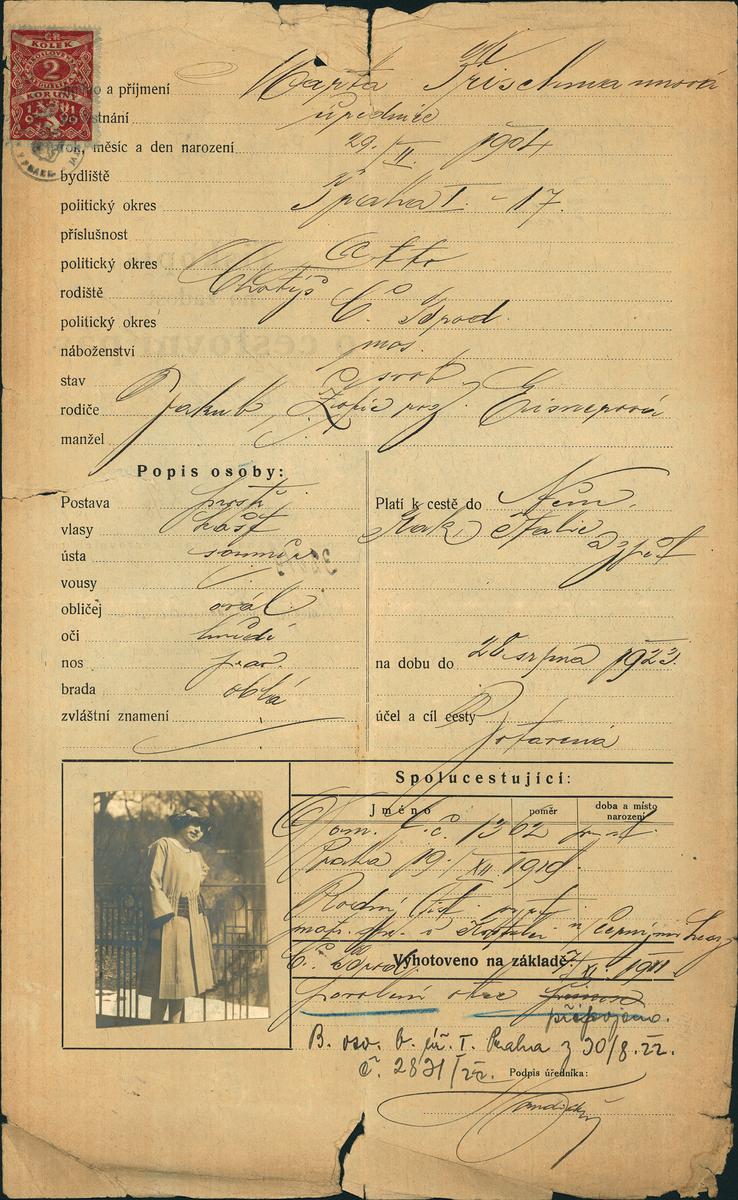 ČR
KOLEK
2
KORUNY
a příjmení Marta Frischmannová
úřednice
rok, měsíc a den narození 29./II. 1904
bydliště
politický okres Praha I. - 17.
příslušnost
politický okres
rodiště Chotýš
politický okres Č. Brod.
náboženství mos
stav svob.
rodiče Jakub, Žofie roz. Eisnerová
manžel
Popis osoby:
Postava prostř
vlasy kašt
ústa souměr
vousy
obličej ovál.
oči hnědé
nos prav.
brada oblá
zvláštní znamení
Platí k cestě do Něm,
Rak, Italie
a zpět
na dobu do 28. srpna 1923.
účel a cíl cesty
Spolucestující:
Jméno poměr doba a místo narození
Dom. l. č. 1302
Praha 19./XII 1919
Rodný list
Č. Brod. 1911
Vyhotoveno na základě:
povolení otce
připojeno.
B. osv. b. úř. I. Praha z 30/8. 22.
č. 2831/22.
Podpis úředníka: